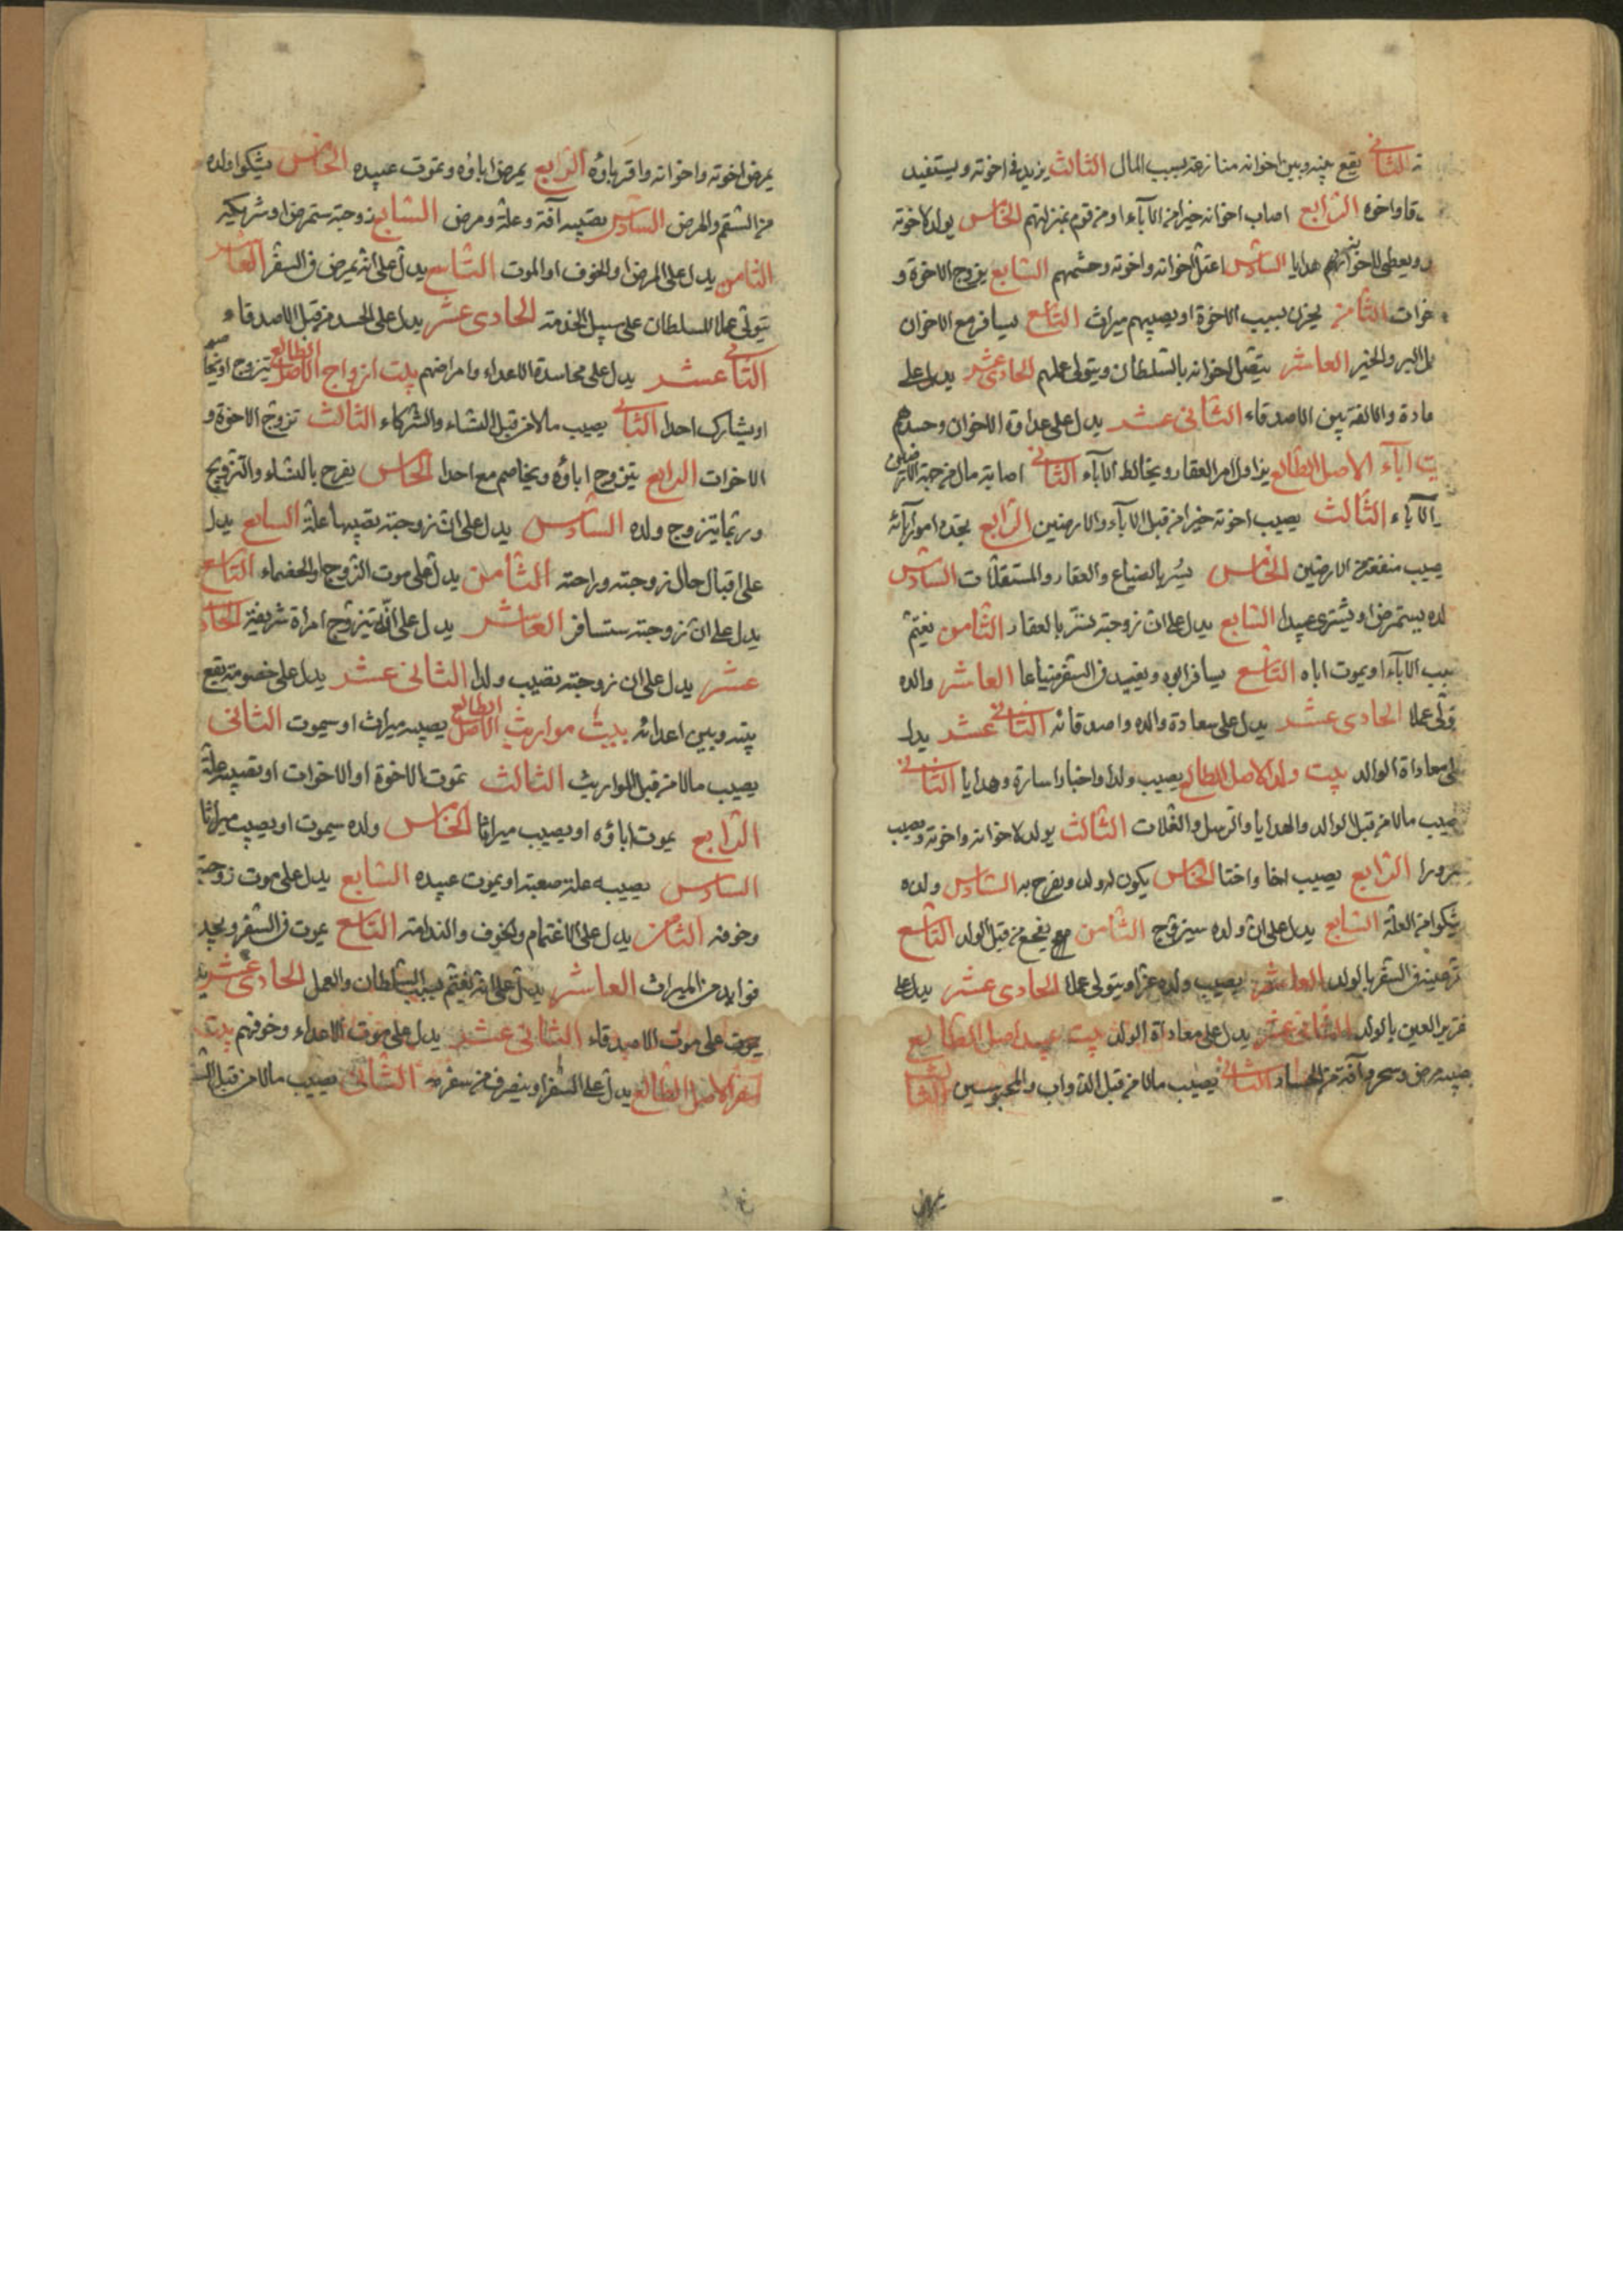 الثانى يقع بينه وبين اخوانه منازعة بسبب المال الثالث يزيد فى اخوته ويستفيد
واخوه الرابع اصاب اخوانه خيرا من الآباء او من قوم بمنزلتهم الخامس يولد لاخوته
ويعطى لاخوانهم هدايا السادس اعتل اخوانه واخوته وحشمهم السابع يزوج الاخوة و
الثامن يحزن بسبب الاخوة او يصيبهم ميراث التاسع يسافر مع الاخوان
البر والخير العاشر يتصل اخوانه بالسلطان ويتولى عملهم الحادى عشر يدل على
والالفة بين الاصدقاء الثانى عشر يدل على عداوة الاخوان وحسدهم
آباء الاصل الطالع يزاول امر العقار ويخالط الآباء الثانى اصابة مال من جهة الارضين
الآباء الثالث يصيب اخوته خيرا من قبل الآباء والارضين الرابع يجدد امور آبائه
يصيب منفعة من الارضين الخامس يسر بالضياع والعقار والمستغلات السادس
يستمرض او يشترى عبيدا السابع يدل على ان زوجته تسر بالعقار الثامن يغتم
الآباء او يموت اباه التاسع يسافر ابوه ويفيد فى السفر ضياعا العاشر والده
عملا الحادى عشر يدل على سعادة والده واصدقائه الثانى عشر يدل
معاداة الوالد بيت ولد الاصل الطالع يصيب ولدا واخبارا سارة وهدايا الثانى
مالا من قبل الوالد والهدايا والرسل والغلات الثالث يولد لاخوانه واخوته ويصيب
الرابع يصيب اخا واختا الخامس يكون له ولد ويفرح به السادس ولده
يشكوا من العلة السابع يدل على ان ولده سيزوج الثامن يفجع من قبل الولد التاسع
فى السفر بالولد العاشر يصيب ولده عزا ويتولى عملا الحادى عشر يدل على
العين بالولد الثانى عشر يدل على معاداة الولد بيت عبيد اصل الطالع
مرض وسحر وآفة من الحساد الثانى يصيب مالا من قبل الدواب والمحبوسين الثالث
يمرض اخوته واخوانه واقرباؤه الرابع يمرض اباؤه ويموت عبيده الخامس يشكوا ولده
من السقم والمرض السادس يصيبه آفة وعلة ومرض السابع زوجته ستمرض او شريكيه
الثامن يدل على المرض او الخوف او الموت التاسع يدل على انه يمرض فى السفر العاشر
يتولى عملا للسلطان على سبيل الخدمة الحادى عشر يدل على الحسد من قبل الاصدقاء
الثانى عشر يدل على محاسدة الاعداء وامراضهم بيت ازواج الاصل الطالع يتزوج او
او يشارك احدا الثانى يصيب مالا من قبل النساء والشركاء الثالث تزوج الاخوة و
الاخوات الرابع يتزوج اباؤه ويخاصم مع احدا الخامس يفرح بالنساء والتزويج
وربما يتزوج ولده السادس يدل على ان زوجته يصيبها علة السابع يدل
على اقبال حال زوجته وراحته الثامن يدل على موت الزوج او الخصماء التاسع
يدل على ان زوجته ستسافر العاشر يدل على انه يتزوج امراة شريفة الحادى
عشر يدل على ان زوجته تصيب ولدا الثانى عشر يدل على خصومة يقع
بينه وبين اعدائه بيت مواريث الاصل الطالع يصيبه ميراث او سيموت الثانى
يصيب مالا من قبل المواريث الثالث تموت الاخوة او الاخوات او تصيبه علة
الرابع يموت اباؤه او يصيب ميراثا الخامس ولده سيموت او يصيب ميراثا
السادس يصيبه علة صعبة او يموت عبيده السابع يدل على موت زوجته
وخوفه الثامن يدل على الاغتمام والخوف والندامة التاسع يموت فى السفر ويجد
فوايد من الميراث العاشر يدل على انه يغتم بسبب السلطان والعمل الحادى عشر
على موت الاصدقاء الثانى عشر يدل على موت الاعداء وخوفهم بيت
سفر الاصل الطالع يدل على السفر او ينصرف من سفره الثانى يصيب مالا من قبل